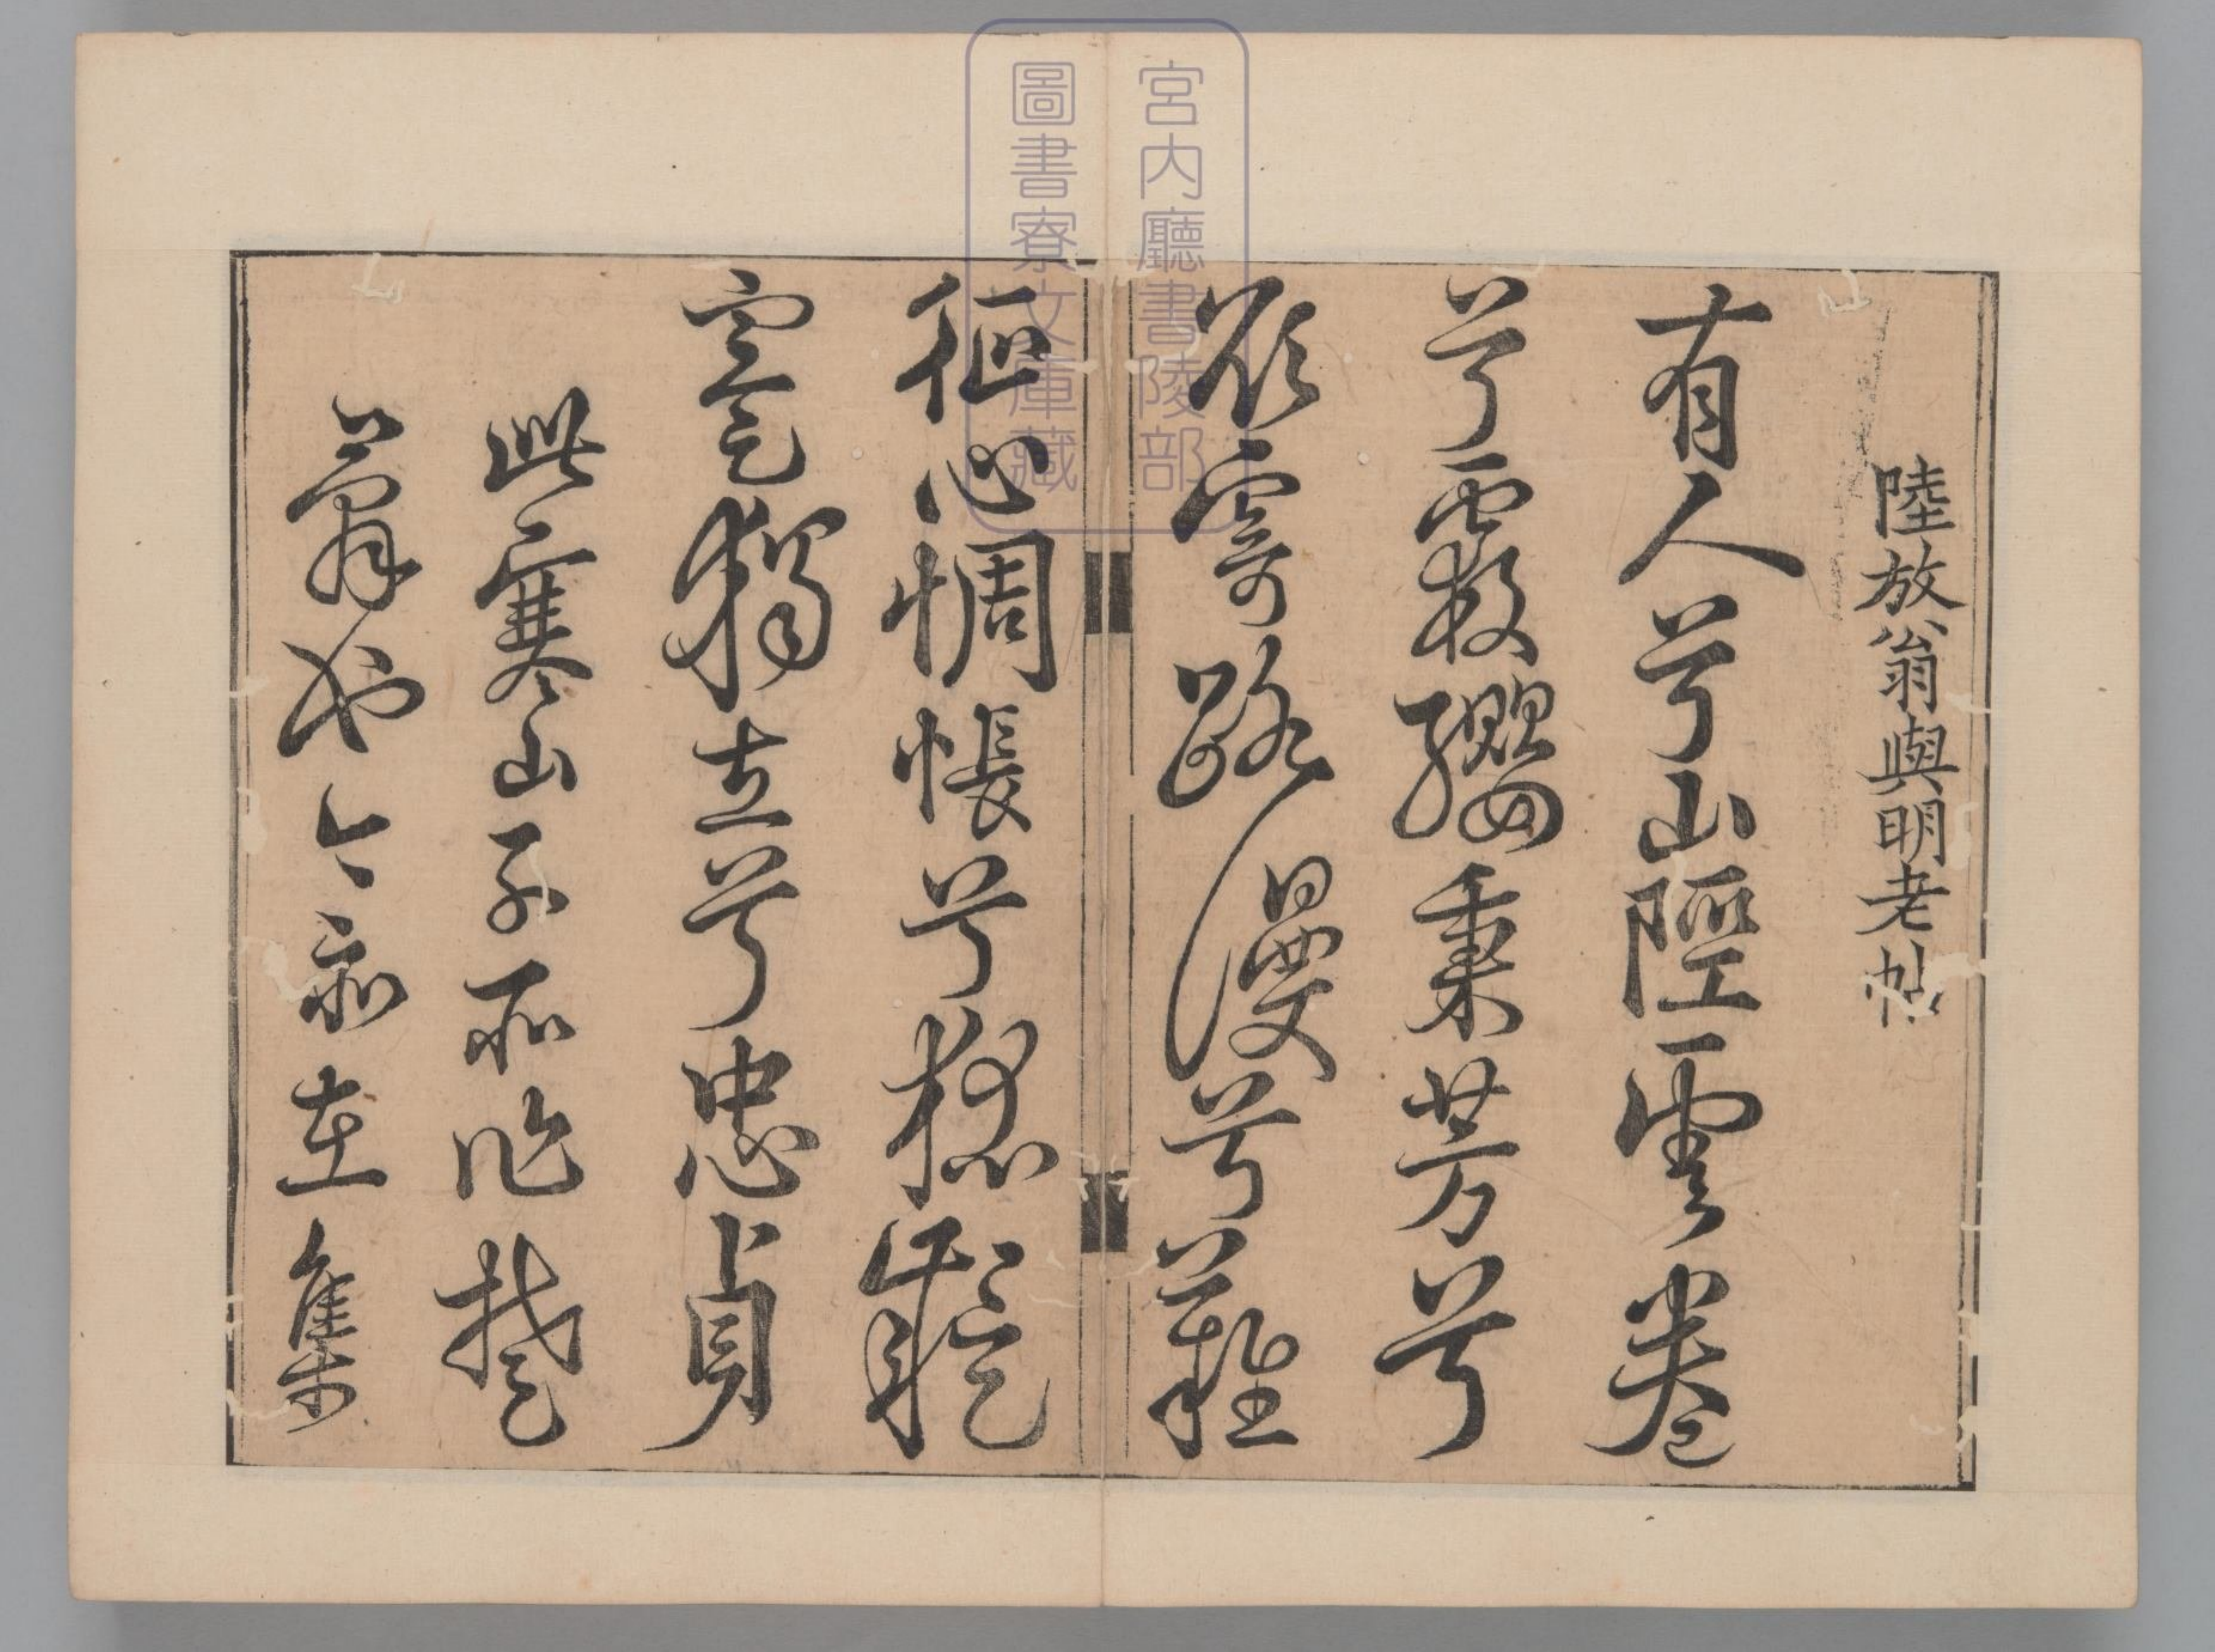 陸放翁與明老帖
有人兮山陘雲卷
兮霞纓秉芳兮
欲寄路漫兮難
征心惆悵兮狐疑
蹇獨立兮忠貞
此寒山子所作楚
辭也今亦在集
宮内廳書陵部
圖書寮文庫藏